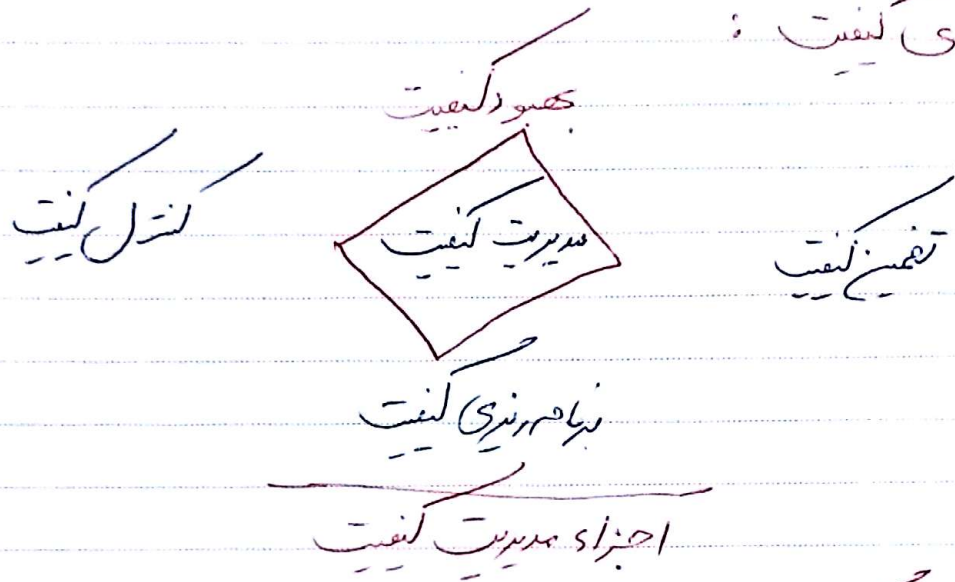 ی کیفیت :
بهبود کیفیت
تضمین کیفیت
مدیریت کیفیت
کنترل کیفیت
برنامه ریزی کیفیت
اجزاء مدیریت کیفیت